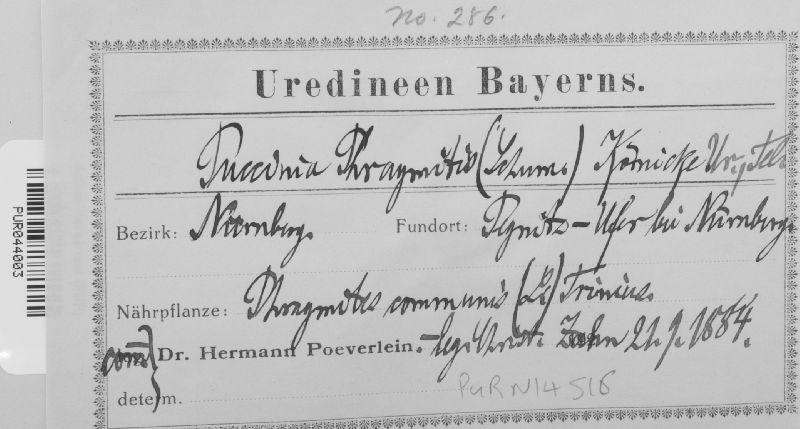 No. 286.
Uredineen Bayerns.
Puccinia Phragmitis (Schum.) Körnicke Ur., Tel.
Bezirk: Nürnberg.
Fundort: Pegnitz-Ufer bei Nürnberg.
Nährpflanze: Phragmites communis (L.) Trinius.
com. Dr. Hermann Poeverlein. - leg. Zahn 21.9.1884.
determ.
PUR N14516
PUR044003